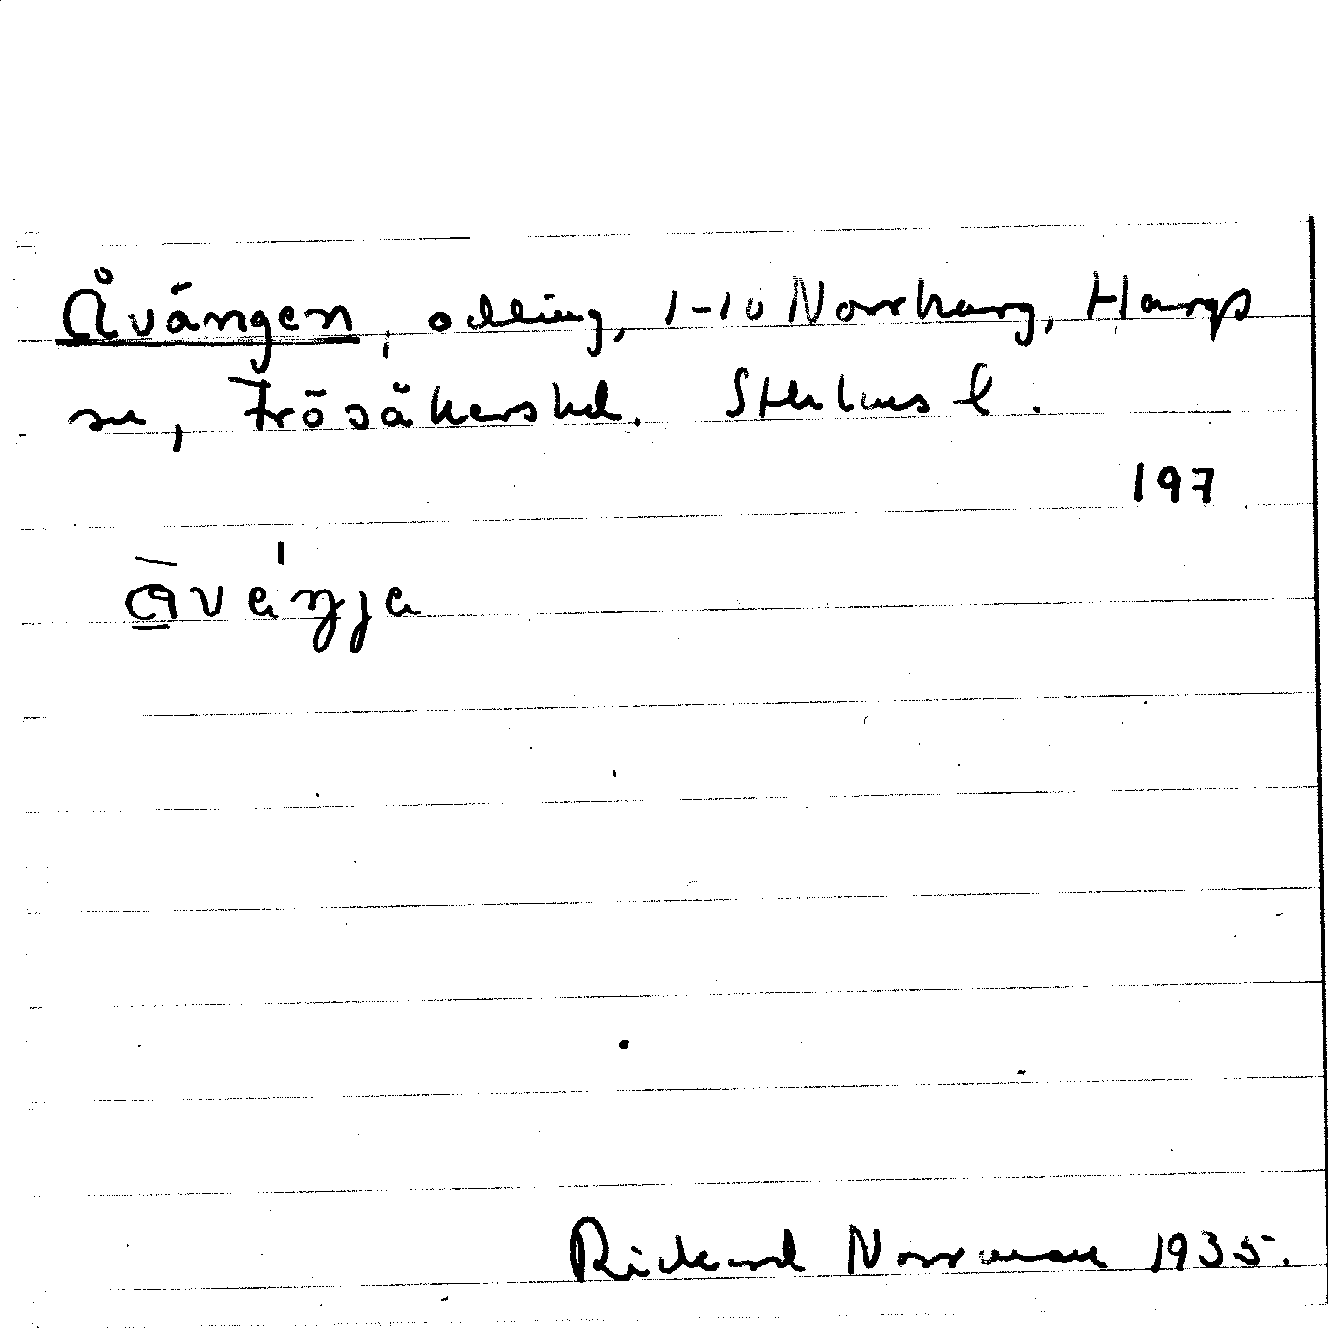 Åvängen, odling, 1-10 Norrharg, Hargs
sn, Frösåkers hd. Sthlms l.
197
a̲̅váŋja
Rickard Norrman 1935.